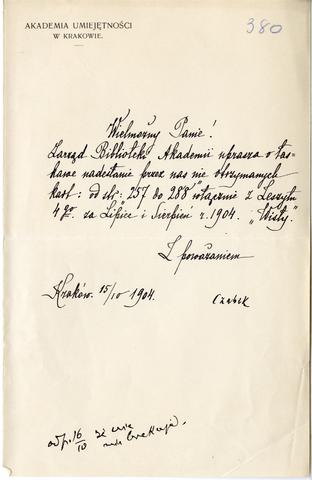 AKADEMIA UMIEJĘTNOŚCI
W KRAKOWIE.
380
Wielmożny Panie!
Zarząd Biblioteki Akademii uprasza o łas-
kawe nadesłanie przez nas nie otrzymanych
kart: od str: 257 do 288 włącznie z Zeszytu
4go. za Lipiec i Sierpień r. 1904. „Wisły".
Z poważaniem
Kraków. 15/IV 1904.
Czubek
odp. 16/IV że nie